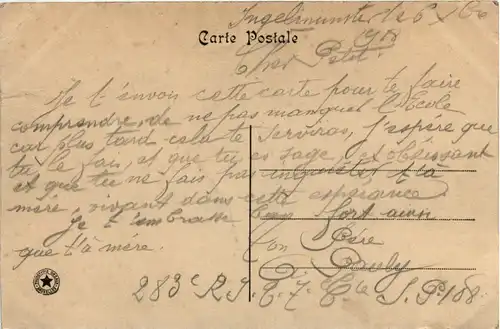 Ingelmunster le 6 X bre
Carte Postale 1918
Cher Petit.
Je t'envoi cette carte pour te faire
comprendre, de ne pas manquel l'école
car plus tard cela te Servira, J'espére que
tu le fai, et que tu es sage, et obéissant
et que tu ne fai pas inquieter ta
mére, vivant dans cette espérance
Je t'embrasse bien fort ainsi
que ta mère.
Ton Pére
283e R.I. 7e Cie S.P. 108